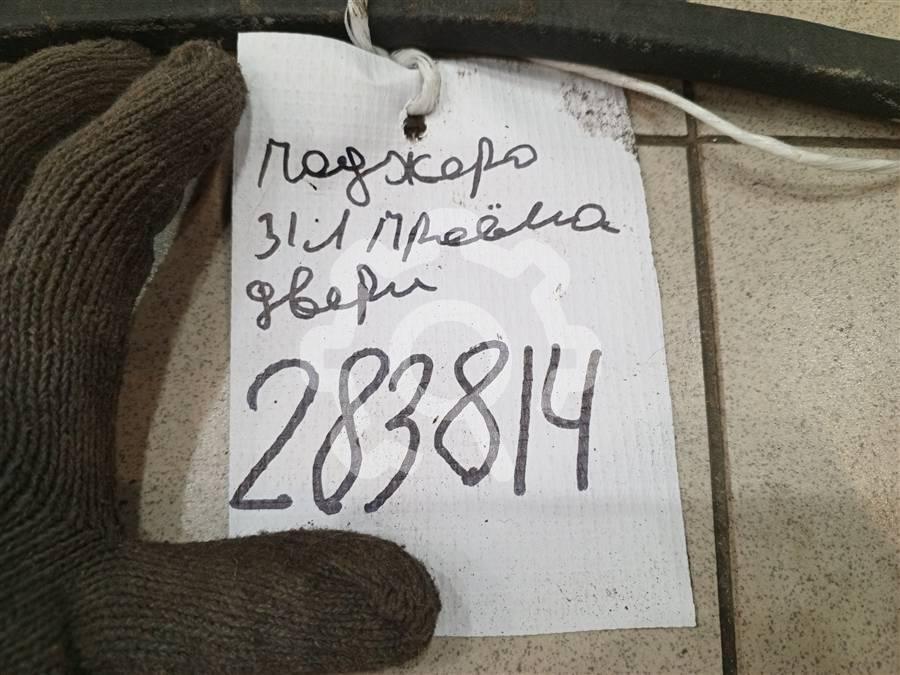 Паджеро
З/Л проёма
двери
283814